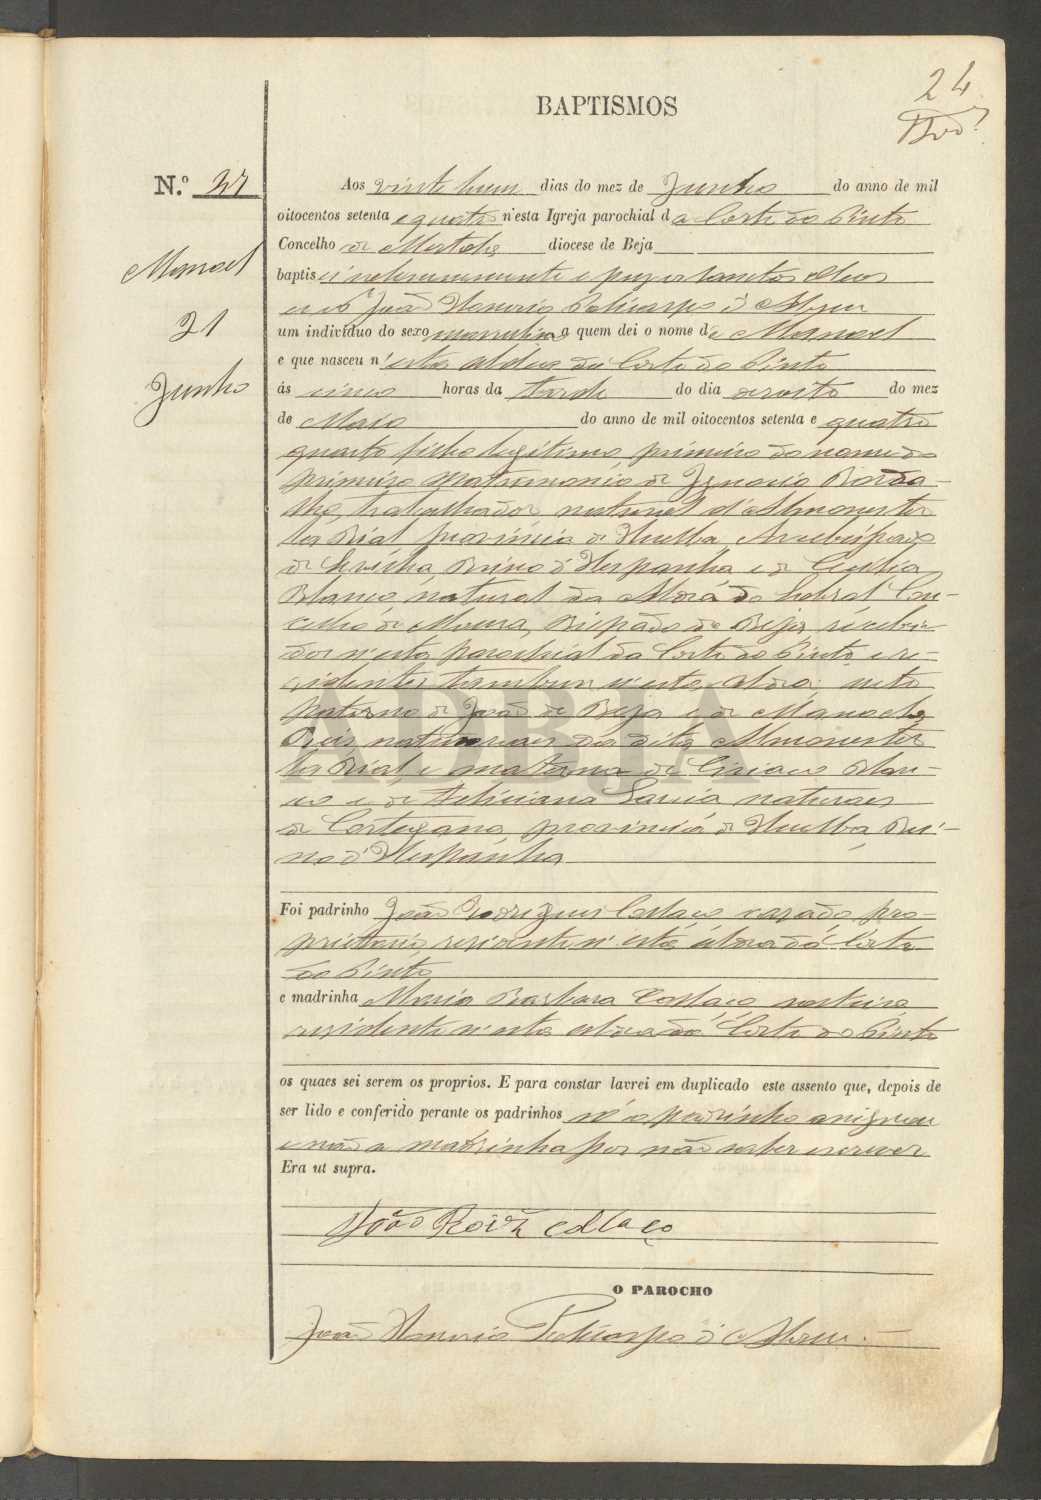 24
BAPTISMOS
N.º 27
Aos vinte hum dias do mez de Junho do anno de mil
oitocentos setenta e quatro n'esta Igreja parochial da Corte do Pinto
Concelho de Mertola diocese de Beja
Manoel
baptisei solemnemente e puz os Santos Oleos
eu P.e João Honorio Policarpo d'Abreu
21
um individuo do sexo masculino a quem dei o nome de Manoel
e que nasceu n'esta aldeia da Corte do Pinto
Junho
ás cinco horas da tarde do dia desoito do mez
de Maio do anno de mil oitocentos setenta e quatro
quarto filho legitimo, primeiro do nome do
primeiro matrimonio de Ignacio
trabalhador natural d'Almonester
la Rial provincia de Huelba, Arcebispado
de Sevilha, Reino d'Hespanha e de Cecilia
Blanco, natural da do Sobral Con-
celho de Moura, Bispado de Beja, recebi-
dos n'esta parochial da Corte do Pinto e re-
sidentes tambem n'esta aldeia; neto
paterno de João de Beja e de Manoela
Reis, naturaes da dita Almonester
la Rial, e materno de Ciriaco Blan-
co e de Feliciana Garcia, naturaes
de Cortegana, provincia de Huelba Rei-
no d'Hespanha
Foi padrinho João Rodrigues Collaço casado, pro-
prietario, residente n'esta aldeia da Corte
do Pinto
e madrinha Maria Barbara Collaço solteira
residente n'esta aldeia da Corte do Pinto
os quaes sei serem os proprios. E para constar lavrei em duplicado este assento que, depois de
ser lido e conferido perante os padrinhos só o padrinho assignou
e não a madrinha por não saber escrever
Era ut supra.
João Roiz Collaço
O PAROCHO
João Honorio Policarpo d'Abreu
ADBJA